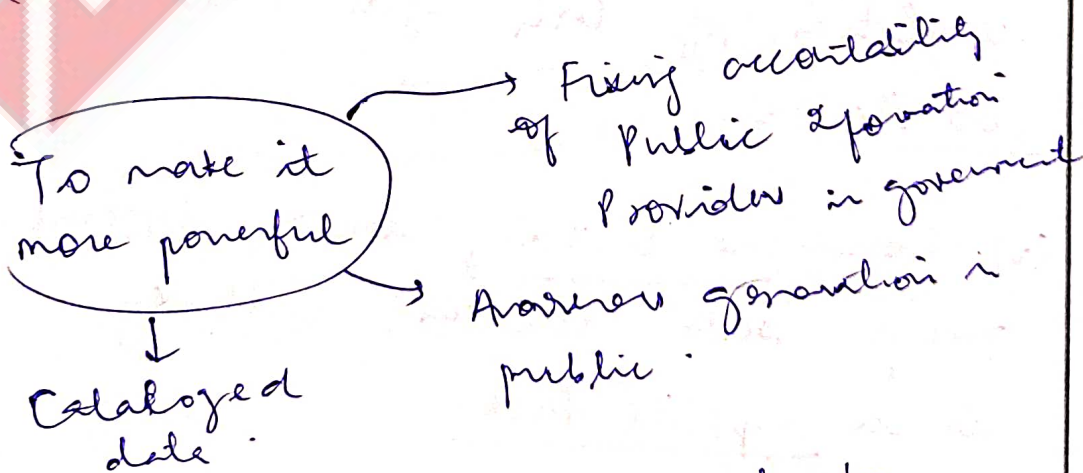 To make it
more powerful
Fixing accountability
of Public Information
Provider in government
Awareness generation in
public.
Cataloged
data.